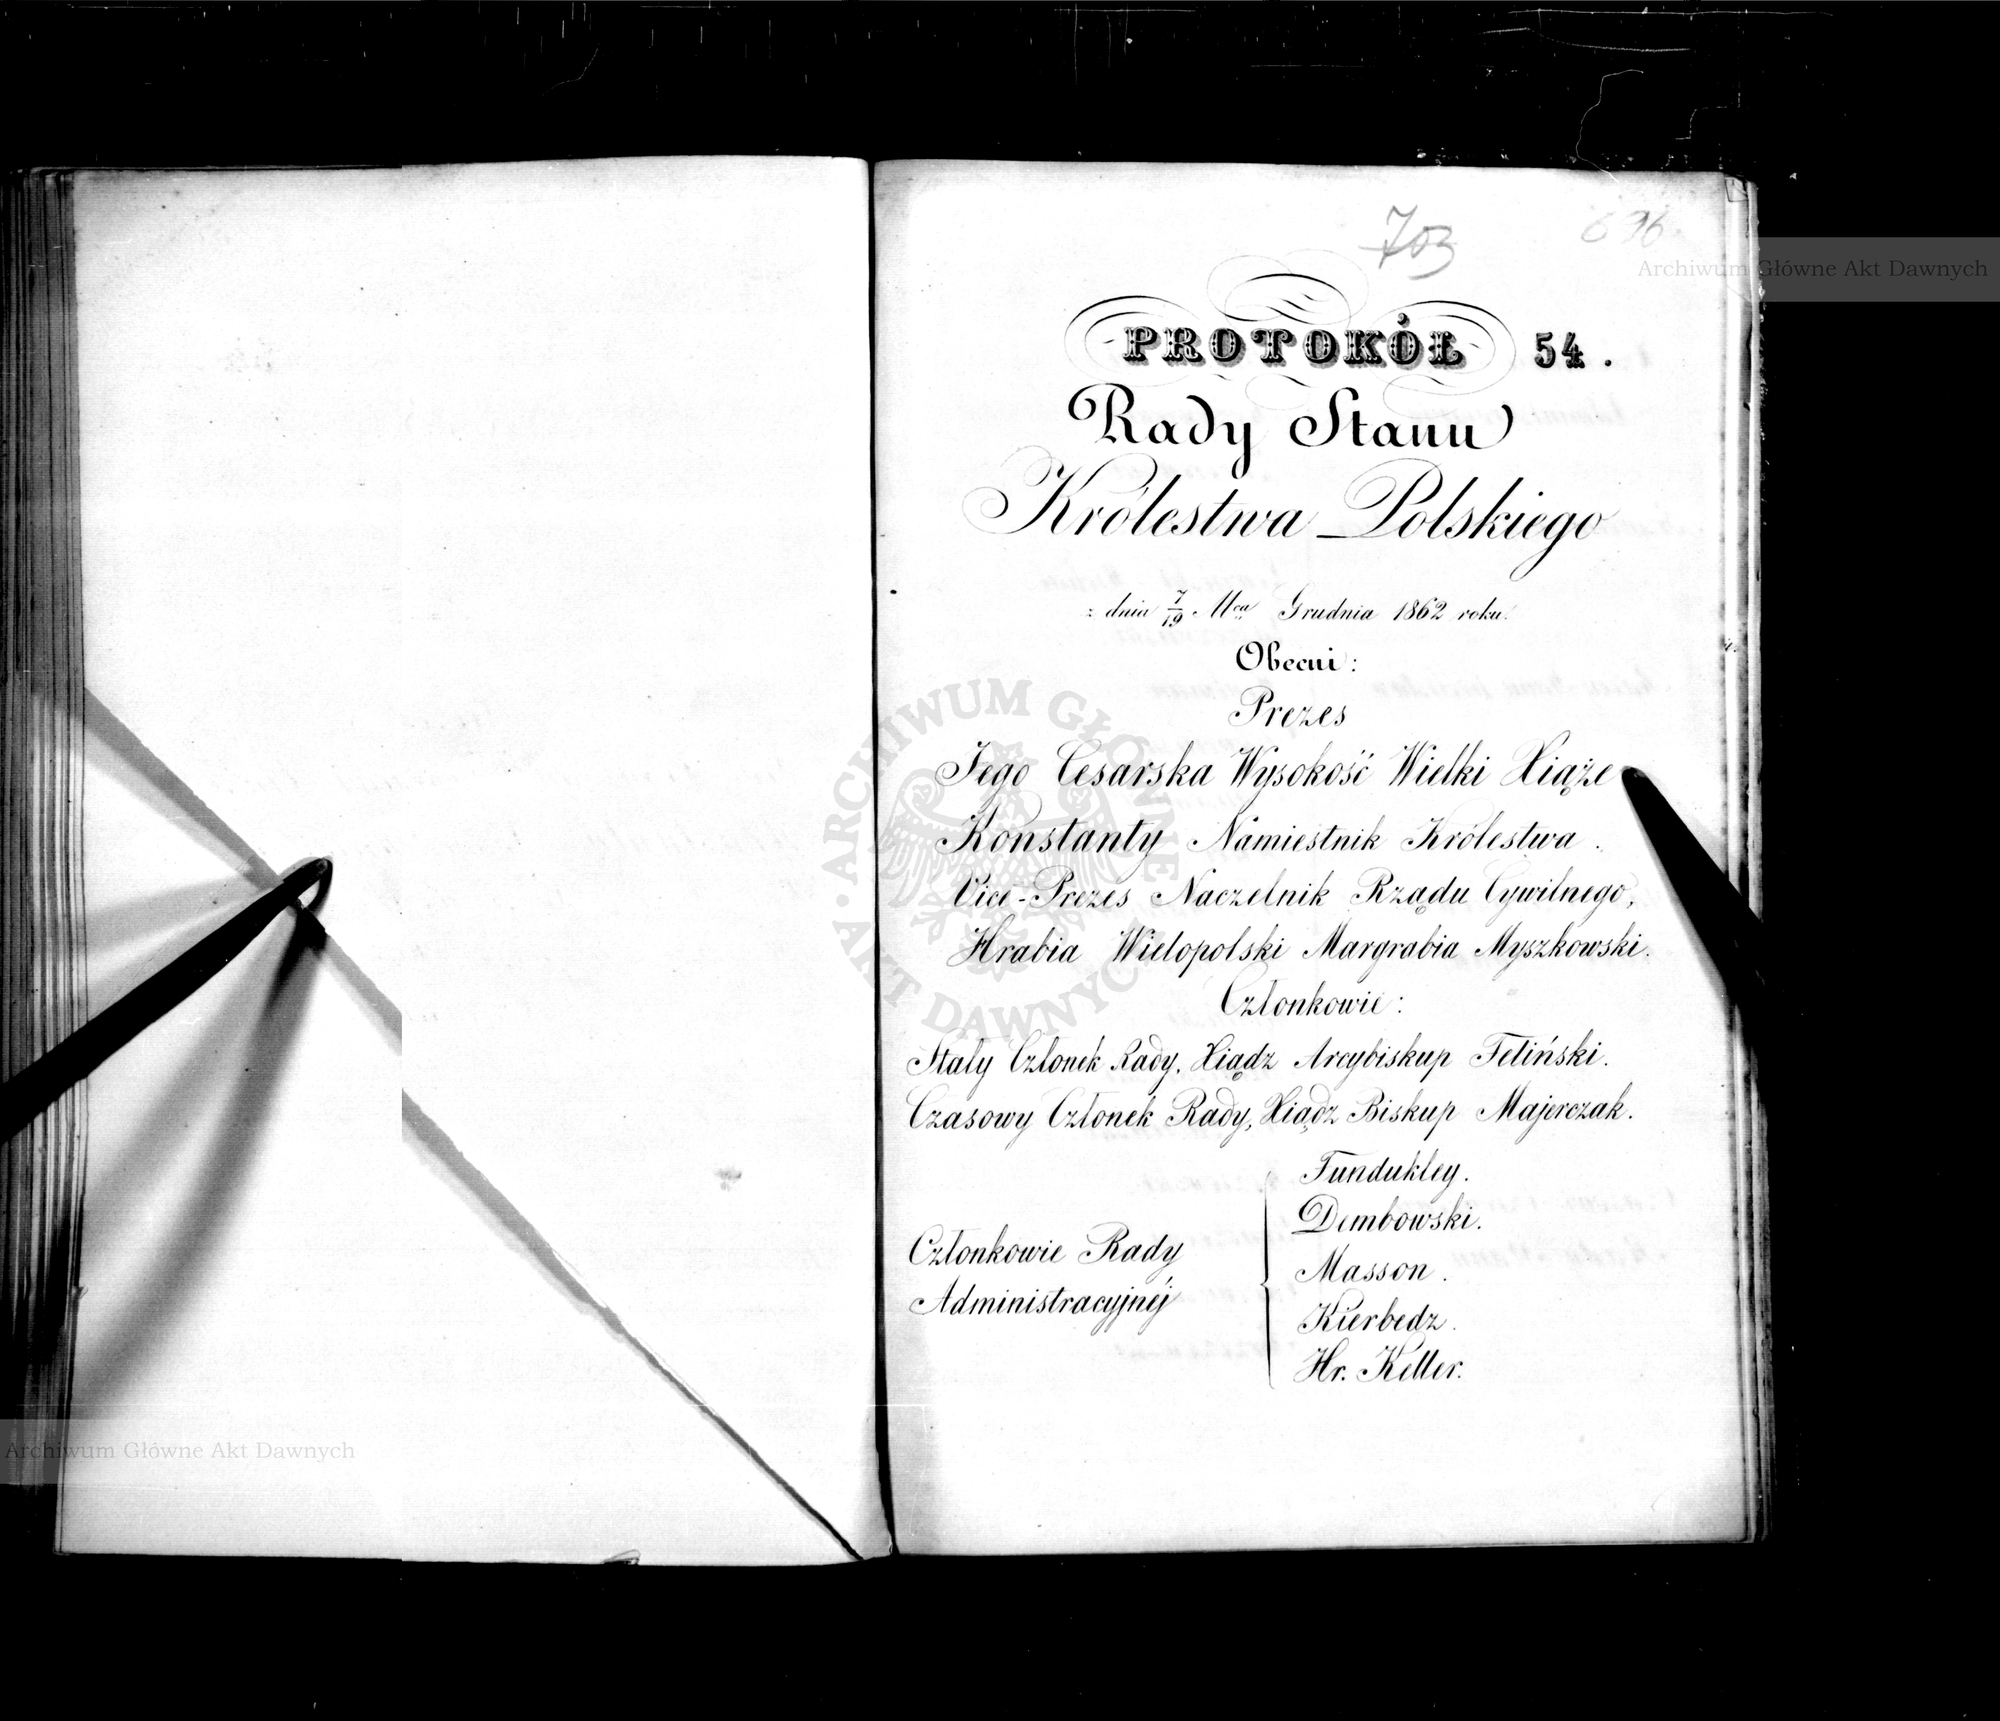 703
696
Archiwum Główne Akt Dawnych
PROTOKÓŁ 54.
Rady Stanu
Królestwa Polskiego
z dnia 7/19 Mca Grudnia 1862 roku.
Obecni:
Prezes
Jego Cesarska Wysokość Wielki Xiąże
Konstanty Namiestnik Królestwa.
Vice-Prezes Naczelnik Rządu Cywilnego,
Hrabia Wielopolski Margrabia Myszkowski.
Członkowie:
Stały Członek Rady, Xiądz Arcybiskup Feliński.
Czasowy Członek Rady, Xiądz Biskup Majerczak.
Członkowie Rady
Administracyjnéj
Fundukley.
Dembowski.
Masson.
Kierbedz.
Hr. Keller.
ARCHIWUM GŁÓWNE AKT DAWNYCH
Archiwum Główne Akt Dawnych